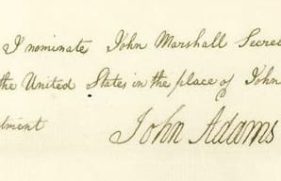 I nominate John Marshall Secre
the United States in the place of John
dment
John Adams